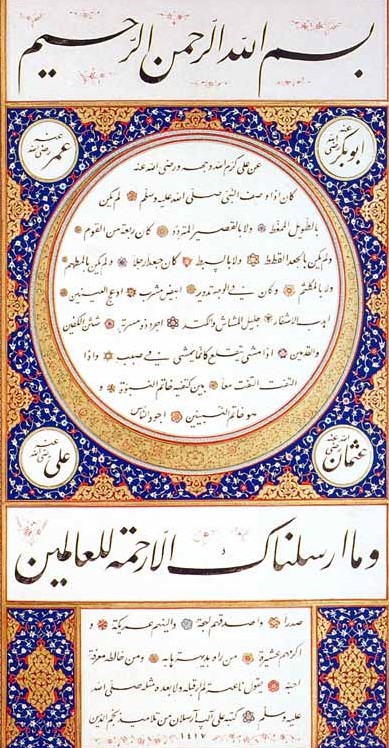 بسم الله الرحمن الرحيم
ابوبكر رضى الله عنه
عمر رضى الله عنه
عن على كرم الله وجهه ورضى الله عنه
كان اذا وصف النبى صلى الله عليه وسلم لم يكن
بالطويل الممغط ولا بالقصير المتردد كان ربعة من القوم
ولم يكن بالجعد القطط ولا بالسبط كان جعدا رجلا ولم يكن بالمطهم
ولا بالمكلثم وكان فى الوجه تدوير ابيض مشرب ادعج العينين
اهدب الاشفار جليل المشاش والكتد اجرد ذو مسربة شثن الكفين
والقدمين اذا مشى تقلع كانما يمشى فى صبب واذا
التفت التفت معا بين كتفيه خاتم النبوة و
هو خاتم النبيين اجود الناس
عثمان رضى الله عنه
على رضى الله عنه
وما ارسلناك الا رحمة للعالمين
صدرا واصدقهم لهجة والينهم عريكة و
اكرمهم عشيرة من راه بديهة هابه ومن خالطه معرفة
احبه يقول ناعته لم ار قبله ولا بعده مثله صلى الله
عليه وسلم كتبه على الب ارسلان من تلاميذ نجم الدين
١٤١٧